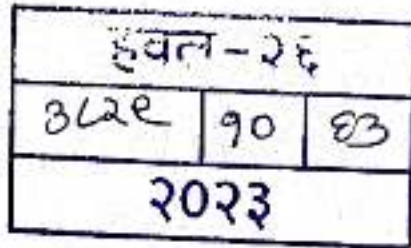 हवल-२६
३८२९ १० ६३
२०२३